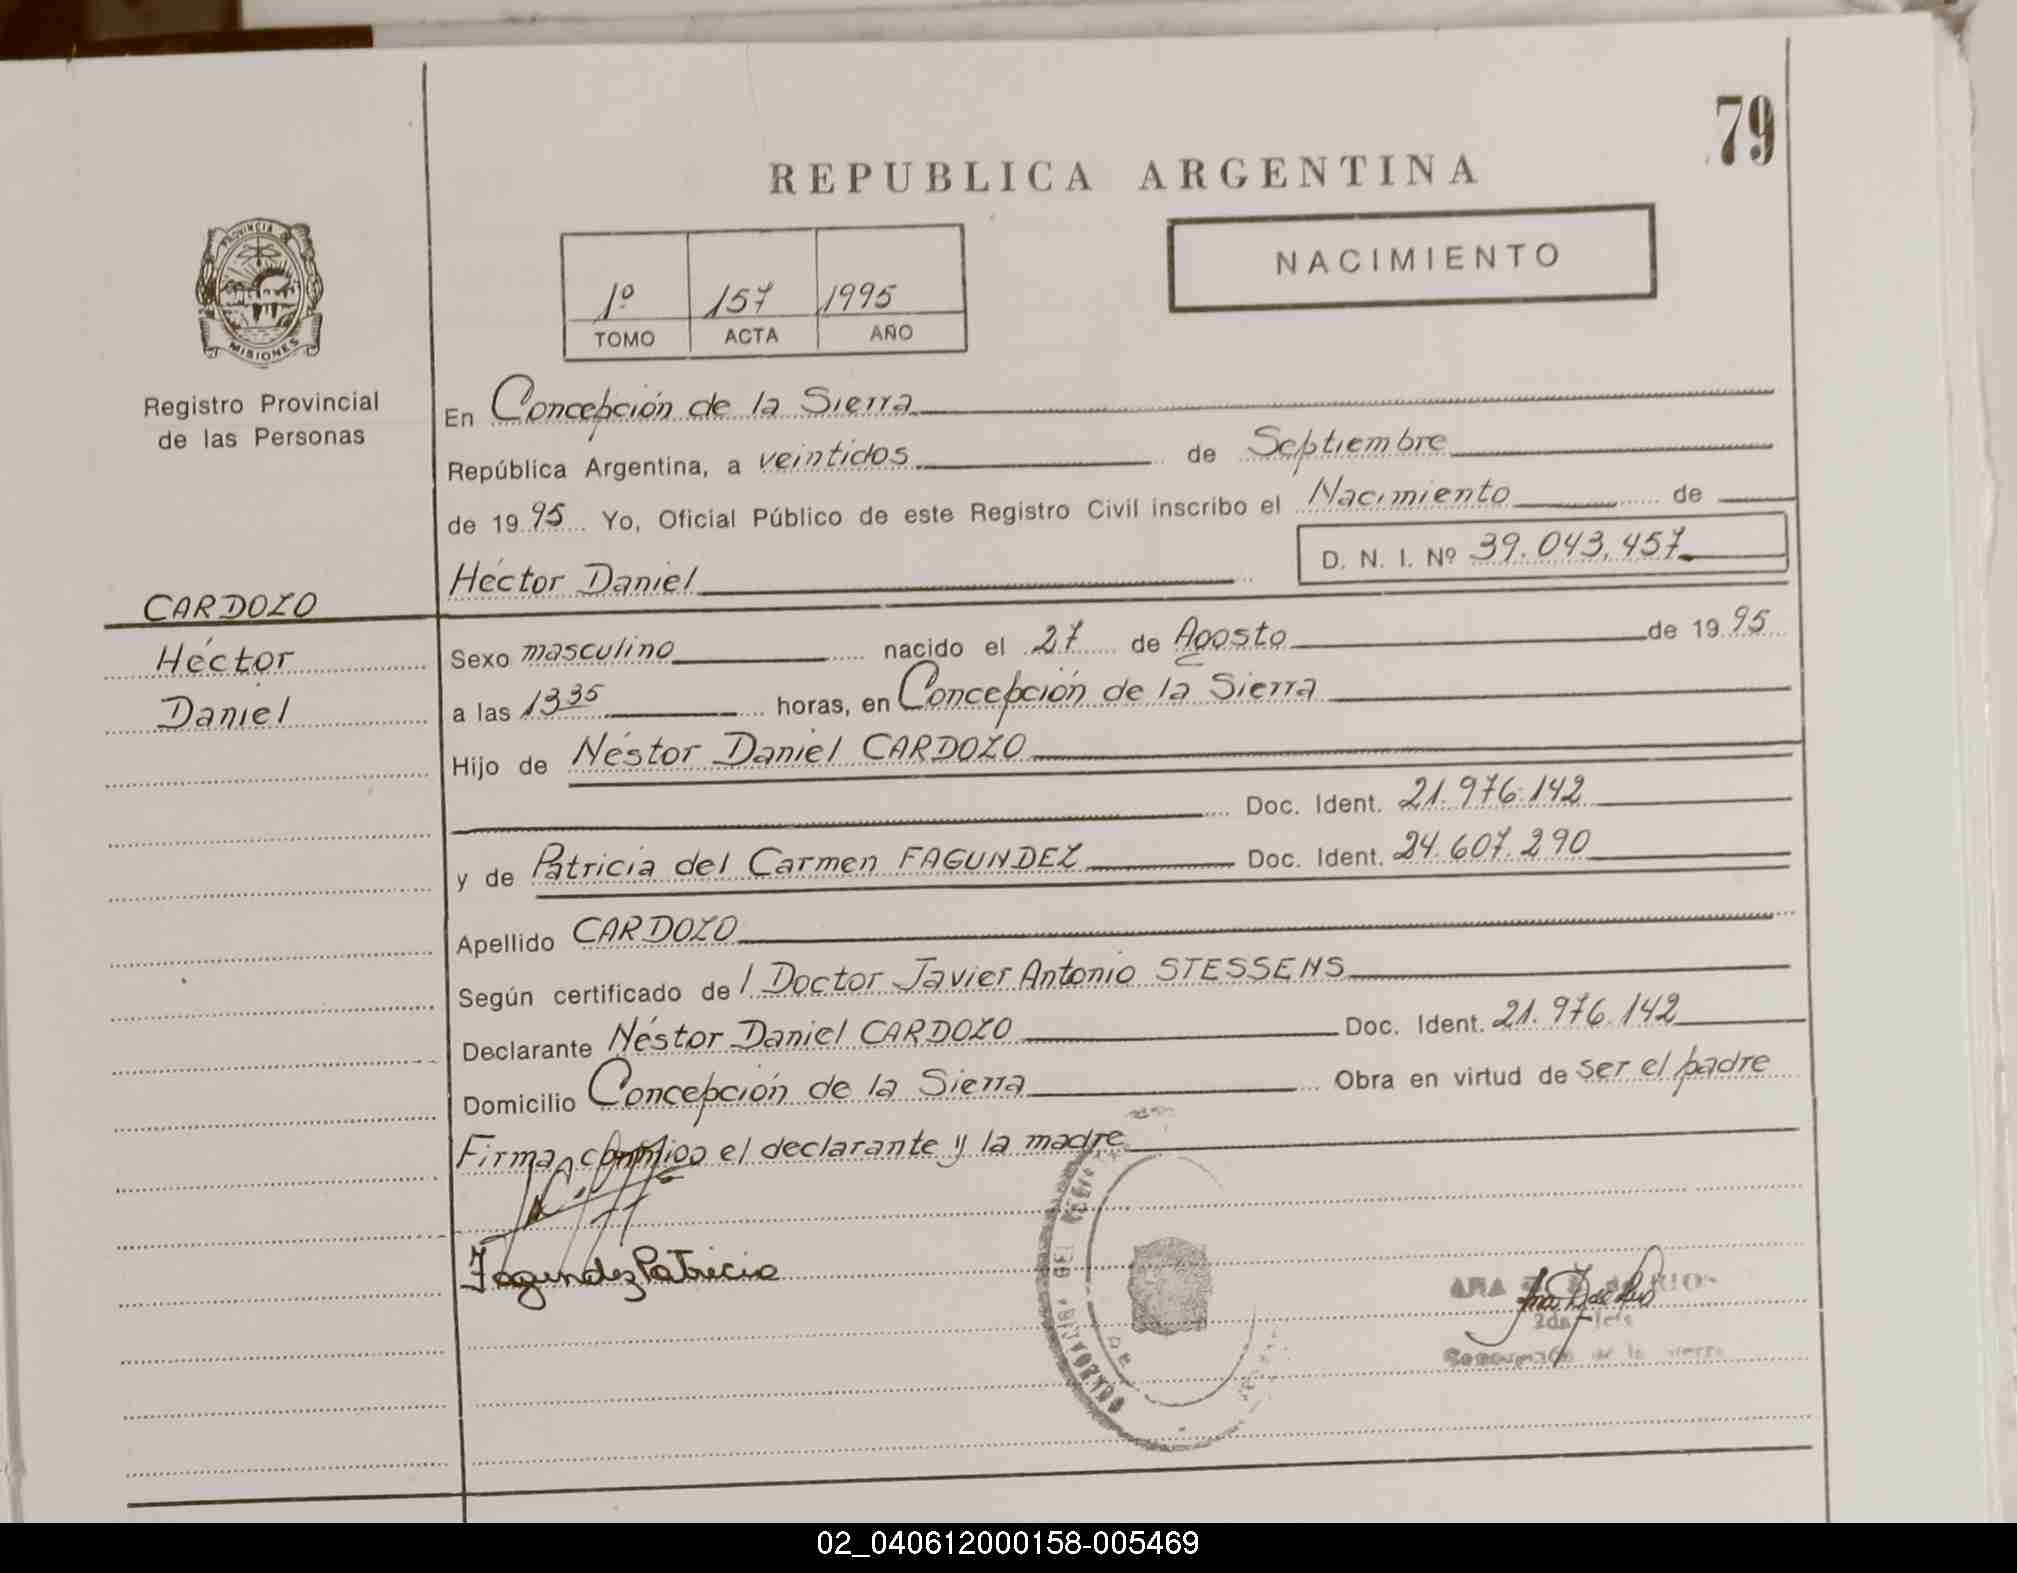 79
REPUBLICA ARGENTINA
PROVINCIA DE
MISIONES
Registro Provincial
de las Personas
NACIMIENTO
1º 157 1995
TOMO ACTA AÑO
En Concepción de la Sierra
República Argentina, a veintidos de Septiembre
de 1995 Yo, Oficial Público de este Registro Civil inscribo el Nacimiento de
Héctor Daniel D. N. I. Nº 39.043.457
CARDOZO
Héctor
Daniel
Sexo masculino nacido el 27 de Agosto de 1995
a las 13 35 horas, en Concepción de la Sierra
Hijo de Néstor Daniel CARDOZO
Doc. Ident. 21.976.142
y de Patricia del Carmen FAGUNDEZ Doc. Ident. 24.607.290
Apellido CARDOZO
Según certificado del Doctor Javier Antonio STESSENS
Declarante Néstor Daniel CARDOZO Doc. Ident. 21.976.142
Domicilio Concepción de la Sierra Obra en virtud de ser el padre
Firma conmigo el declarante y la madre
Fagundez Patricia
02_040612000158-005469